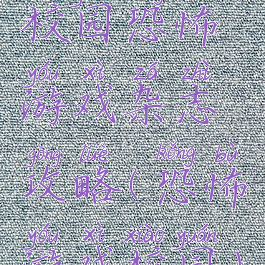 校园恐怖
yóu xì zá zhì
游戏杂志
gōng lüè kǒng bù
攻略(恐怖
yóu xì xiào yuán